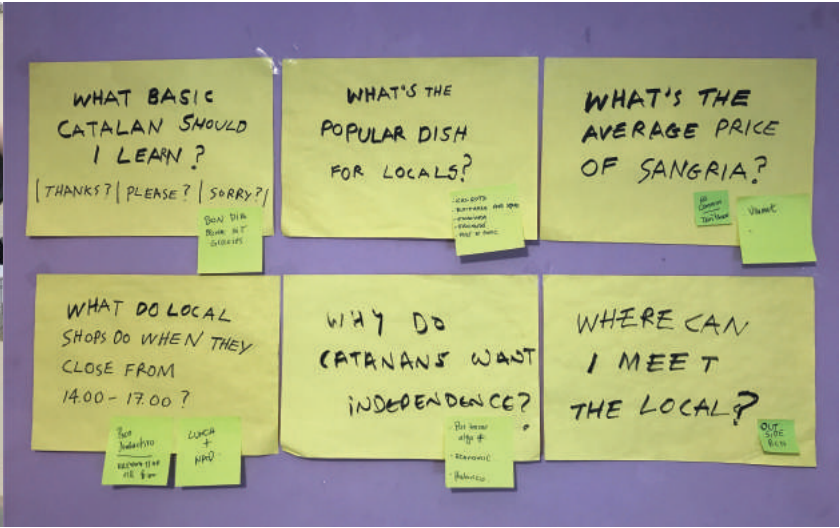 WHAT BASIC
CATALAN SHOULD
I LEARN?
|THANKS?| PLEASE? | SORRY?|
BON DIA
BONA NIT
GRACIES
WHAT'S THE
POPULAR DISH
FOR LOCALS?
WHAT'S THE
AVERAGE PRICE
OF SANGRIA?
WHAT DO LOCAL
SHOPS DO WHEN THEY
CLOSE FROM
14.00 - 17.00 ?
LUNCH
+
WHY DO
CATANANS WANT
INDEPENDENCE?
- ECONOMIC
WHERE CAN
I MEET
THE LOCAL?
OUT
SIDE
BCN